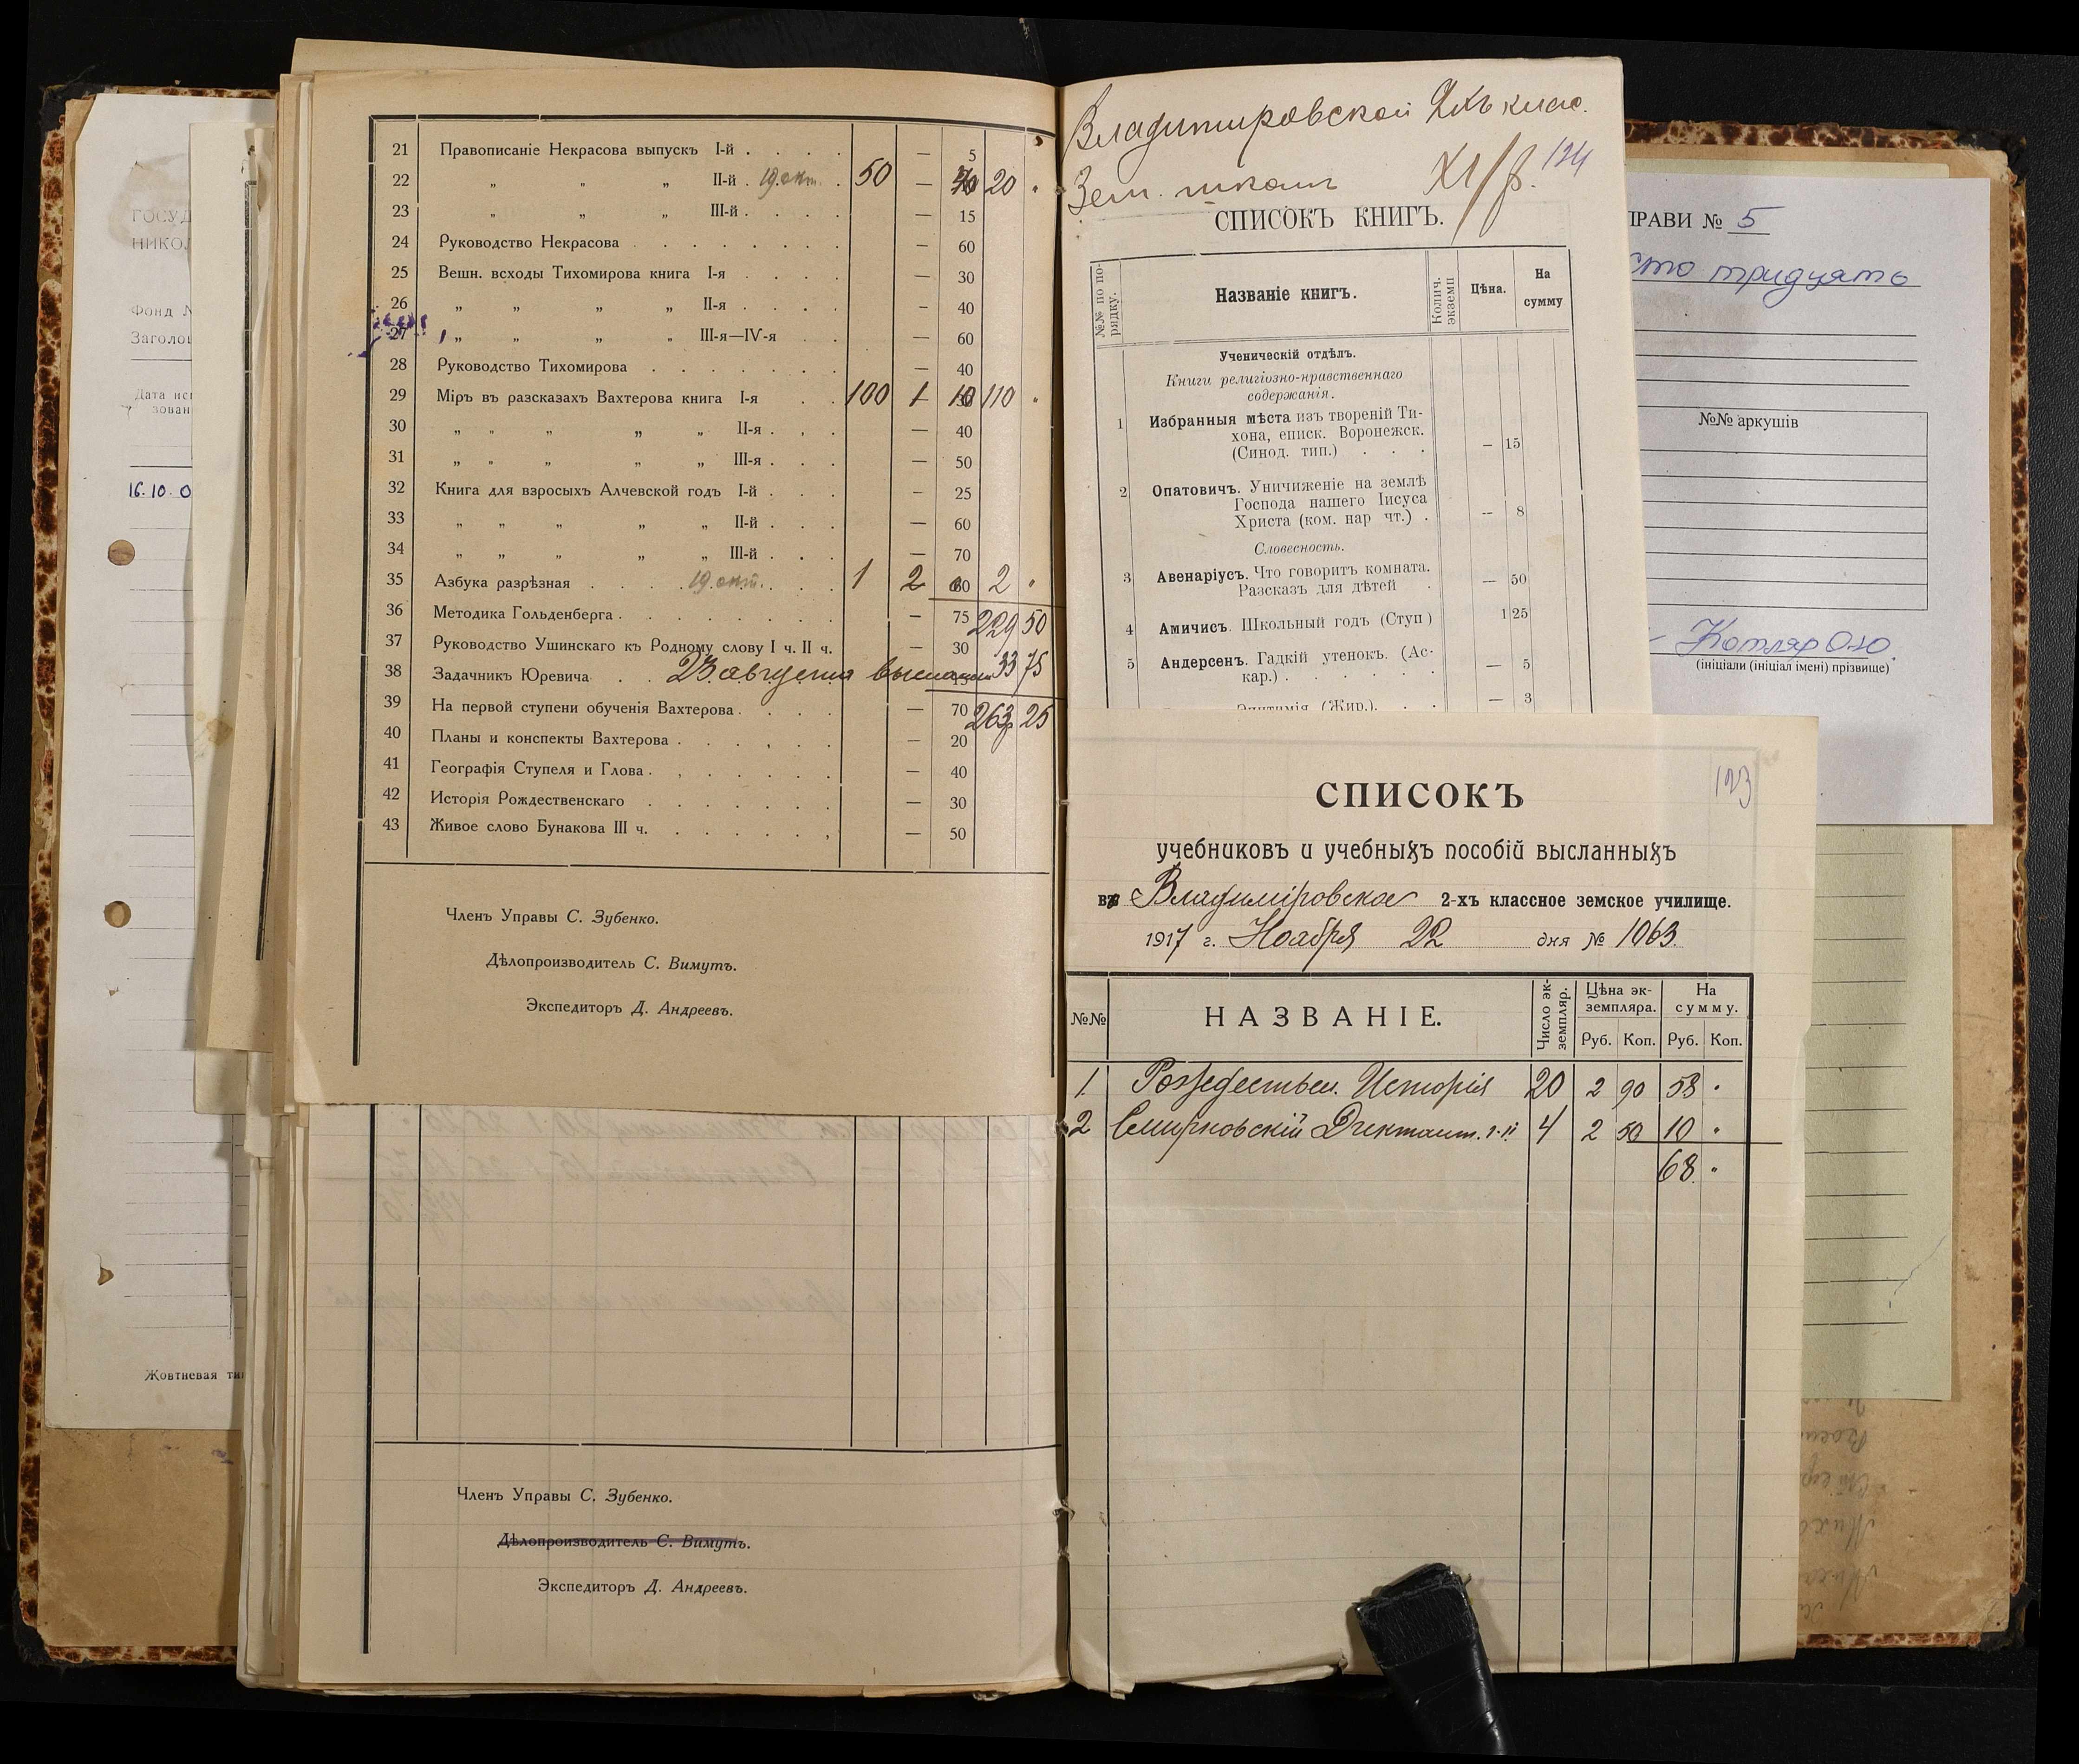 21 Правописаніе Некрасова выпускъ I-й . . . . — 5
22 „ „ „ II-й . 19 окт. . 50 — 40 20 „
23 „ „ „ III-й . . . . — 15
24 Руководство Некрасова . . . . . . . . — 60
25 Вешн. всходы Тихомирова книга I-я . . . . — 30
26 „ „ „ „ II-я . . . . — 40
27 „ „ „ „ III-я—IV-я . . — 60
28 Руководство Тихомирова . . . . . . . — 40
29 Міръ въ разсказахъ Вахтерова книга I-я . . 100 1 10 110 „
30 „ „ „ „ „ II-я . . . — 40
31 „ „ „ „ „ III-я . . . — 50
32 Книга для взросыхъ Алчевской годъ I-й . . . — 25
33 „ „ „ „ „ II-й . . . — 60
34 „ „ „ „ „ III-й . . . — 70
35 Азбука разрѣзная . . . 19 окт. . . . 1 2 60 2 „
36 Методика Гольденберга . . . . . . . . — 75
229 50
37 Руководство Ушинскаго къ Родному слову I ч. II ч. — 30
38 Задачникъ Юревича . . 23 августа 33 75
39 На первой ступени обученія Вахтерова . . . . — 70
263 25
40 Планы и конспекты Вахтерова . . . . . . — 20
41 Географія Ступеля и Глова . . . . . . . — 40
42 Исторія Рождественскаго . . . . . . . — 30
43 Живое слово Бунакова III ч. . . . . . . — 50
Членъ Управы С. Зубенко.
Дѣлопроизводитель С. Вимутъ.
Экспедиторъ Д. Андреевъ.
Членъ Управы С. Зубенко.
Дѣлопроизводитель С. Вимутъ.
Экспедиторъ Д. Андреевъ.
Владимировской 2хъ клас.
Зем. школы XI/8. 124
СПИСОКЪ КНИГЪ.
№№ по по-
рядку.
Названіе книгъ.
Колич.
экземп
Цѣна.
На
сумму
Ученическій отдѣлъ.
Книги религіозно-нравственнаго
содержанія.
1 Избранныя мѣста изъ твореній Ти-
хона, еписк. Воронежск.
(Синод. тип.) . . . — 15
2 Опатовичъ. Уничиженіе на землѣ
Господа нашего Іисуса
Христа (ком. нар чт.) . — 8
Словесность.
3 Авенаріусъ. Что говоритъ комната.
Разсказъ для дѣтей . — 50
4 Амичисъ. Школьный годъ (Ступ ) 1 25
5 Андерсенъ. Гадкій утенокъ. (Ас-
кар.) . . . . . . — 5
(Жир.). . . — 3
123
СПИСОКЪ
учебниковъ и учебныхъ пособій высланныхъ
въ Владиміровское 2-хъ классное земское училище.
1917 г. Ноября 22 дня № 1063.
№№
НАЗВАНІЕ.
Число эк-
земпляр.
Цѣна эк-
земпляра.
На
сумму.
Руб. Коп. Руб. Коп.
1. Рождествен. Исторія 20 2 90 58 „
2 Смирновскій Диктант. 4 2 50 10 „
68 „
ПРАВИ № 5
сто тридцять
№№ аркушів
Котляр О.Ю
(ініціали (ініціал імені) прізвище)
ГОСУД
НИКОЛ
Фонд №
Заголов
Дата исп
зован
16.10.0
Жовтневая ти